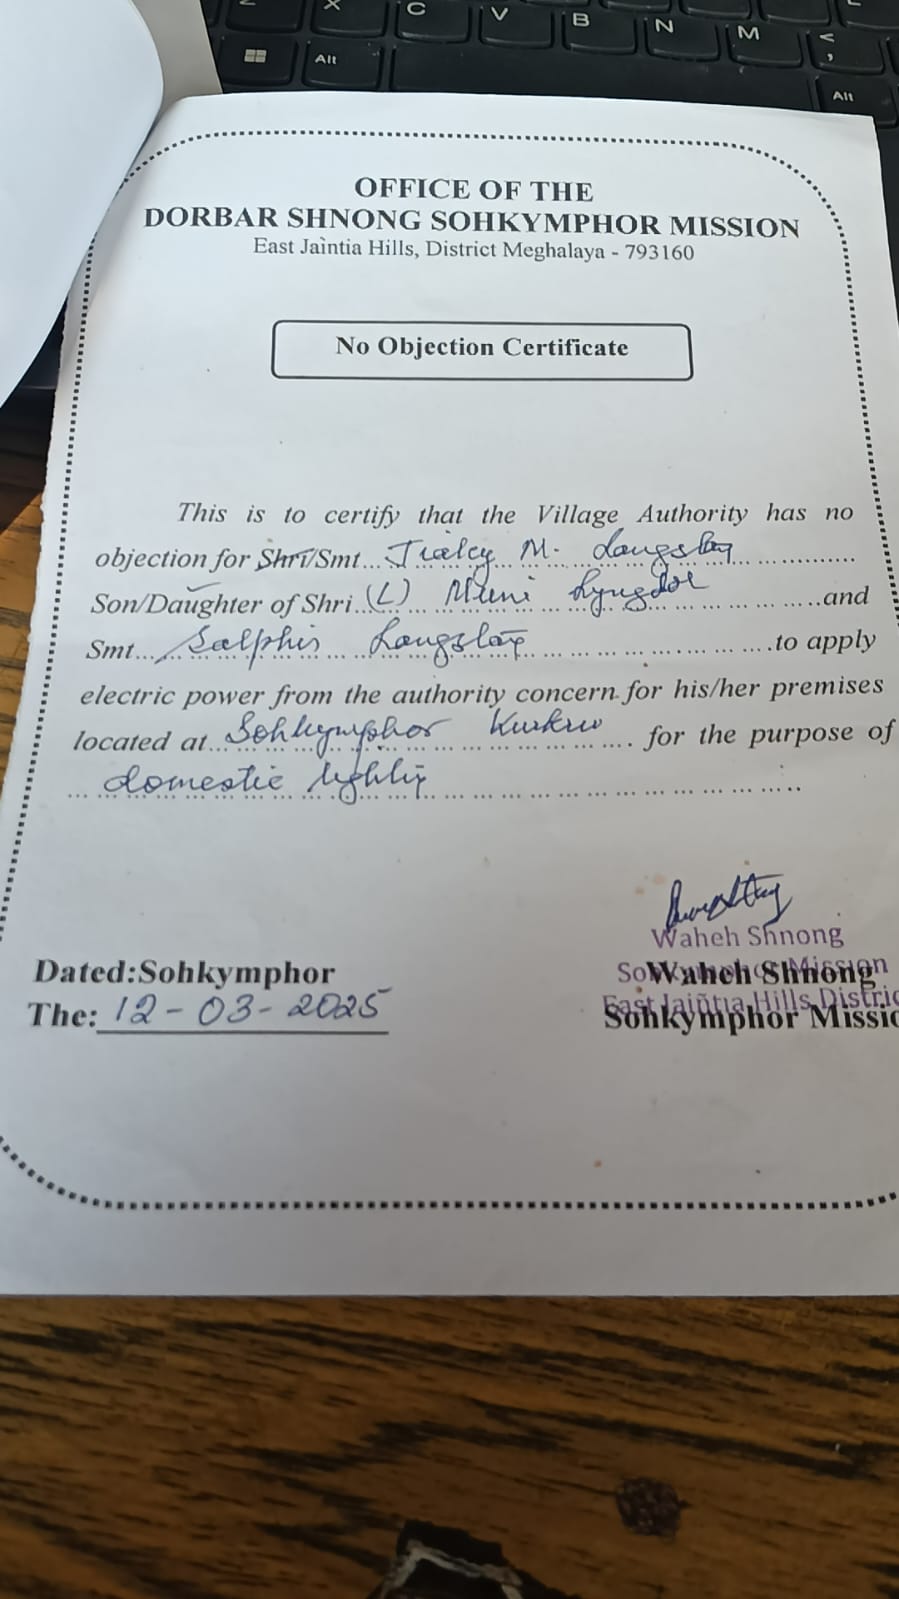 Z X C V B N M < ,
Alt Alt
OFFICE OF THE
DORBAR SHNONG SOHKYMPHOR MISSION
East Jaintia Hills, District Meghalaya - 793160
No Objection Certificate
This is to certify that the Village Authority has no
objection for Shri/Smt... M. Langstang
Son/Daughter of Shri (L) Muni Lyngdoh and
Smt... Salphis Langstang to apply
electric power from the authority concern for his/her premises
located at... Sohkymphor for the purpose of
domestic lighting
Waheh Shnong
Sohkymphor Mission
East Jaintia Hills Distric
Dated:Sohkymphor
The: 12-03-2025
Waheh Shnong
Sohkymphor Missio